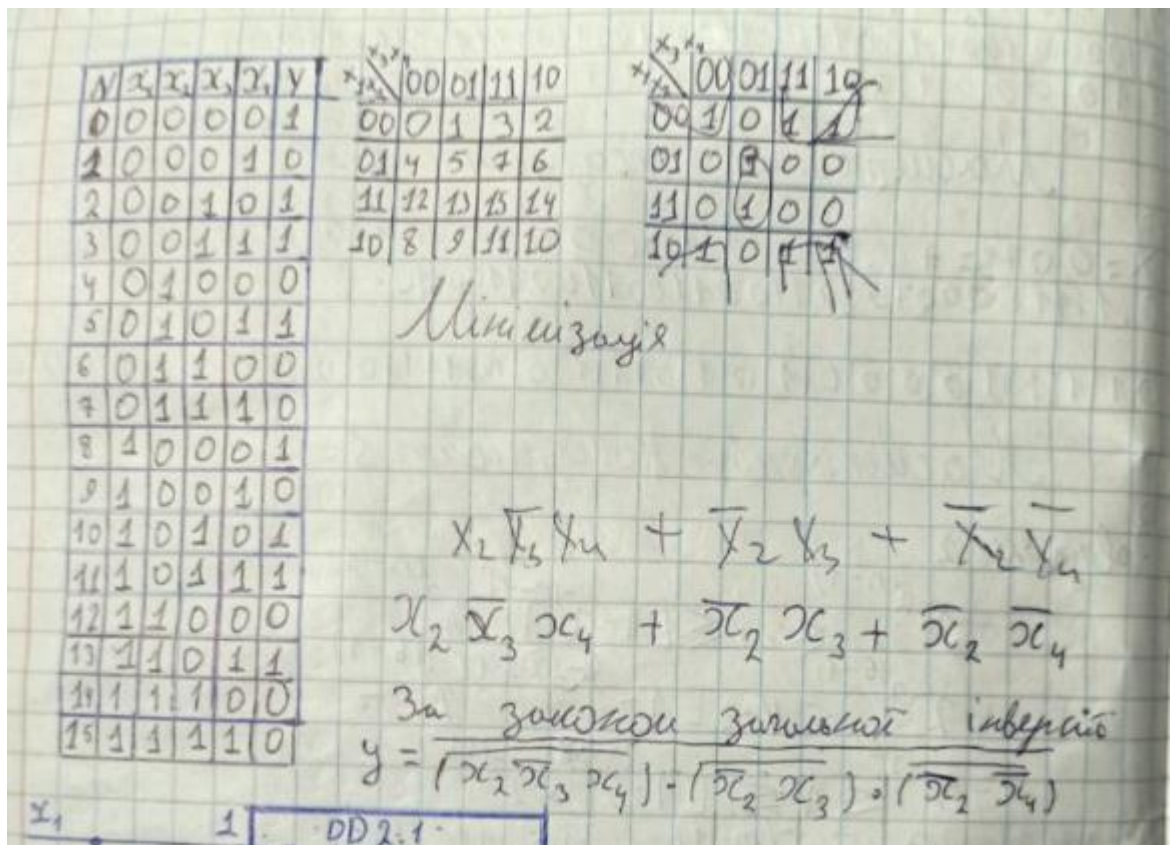 N x₁ x₂ x₃ x₄ y
0 0 0 0 0 1
1 0 0 0 1 0
2 0 0 1 0 1
3 0 0 1 1 1
4 0 1 0 0 0
5 0 1 0 1 1
6 0 1 1 0 0
7 0 1 1 1 0
8 1 0 0 0 1
9 1 0 0 1 0
10 1 0 1 0 1
11 1 0 1 1 1
12 1 1 0 0 0
13 1 1 0 1 1
14 1 1 1 0 0
15 1 1 1 1 0
x₃x₄
x₁x₂ 00 01 11 10
00 0 1 3 2
01 4 5 7 6
11 12 13 15 14
10 8 9 11 10
x₃x₄
x₁x₂ 00 01 11 10
00 1 0 1 1
01 0 1 0 0
11 0 1 0 0
10 1 0 1 1
Мінімізація
x₂ x̅₃ x₄ + x̅₂ x₃ + x̅₂ x̅₄
x₂ x̅₃ x₄ + x̅₂ x₃ + x̅₂ x̅₄
За законом загальної інверсії
y = \overline{\overline{(x₂ x̅₃ x₄)} · \overline{(x̅₂ x₃)} · \overline{(x̅₂ x̅₄)}}
x₁ 1 DD2.1